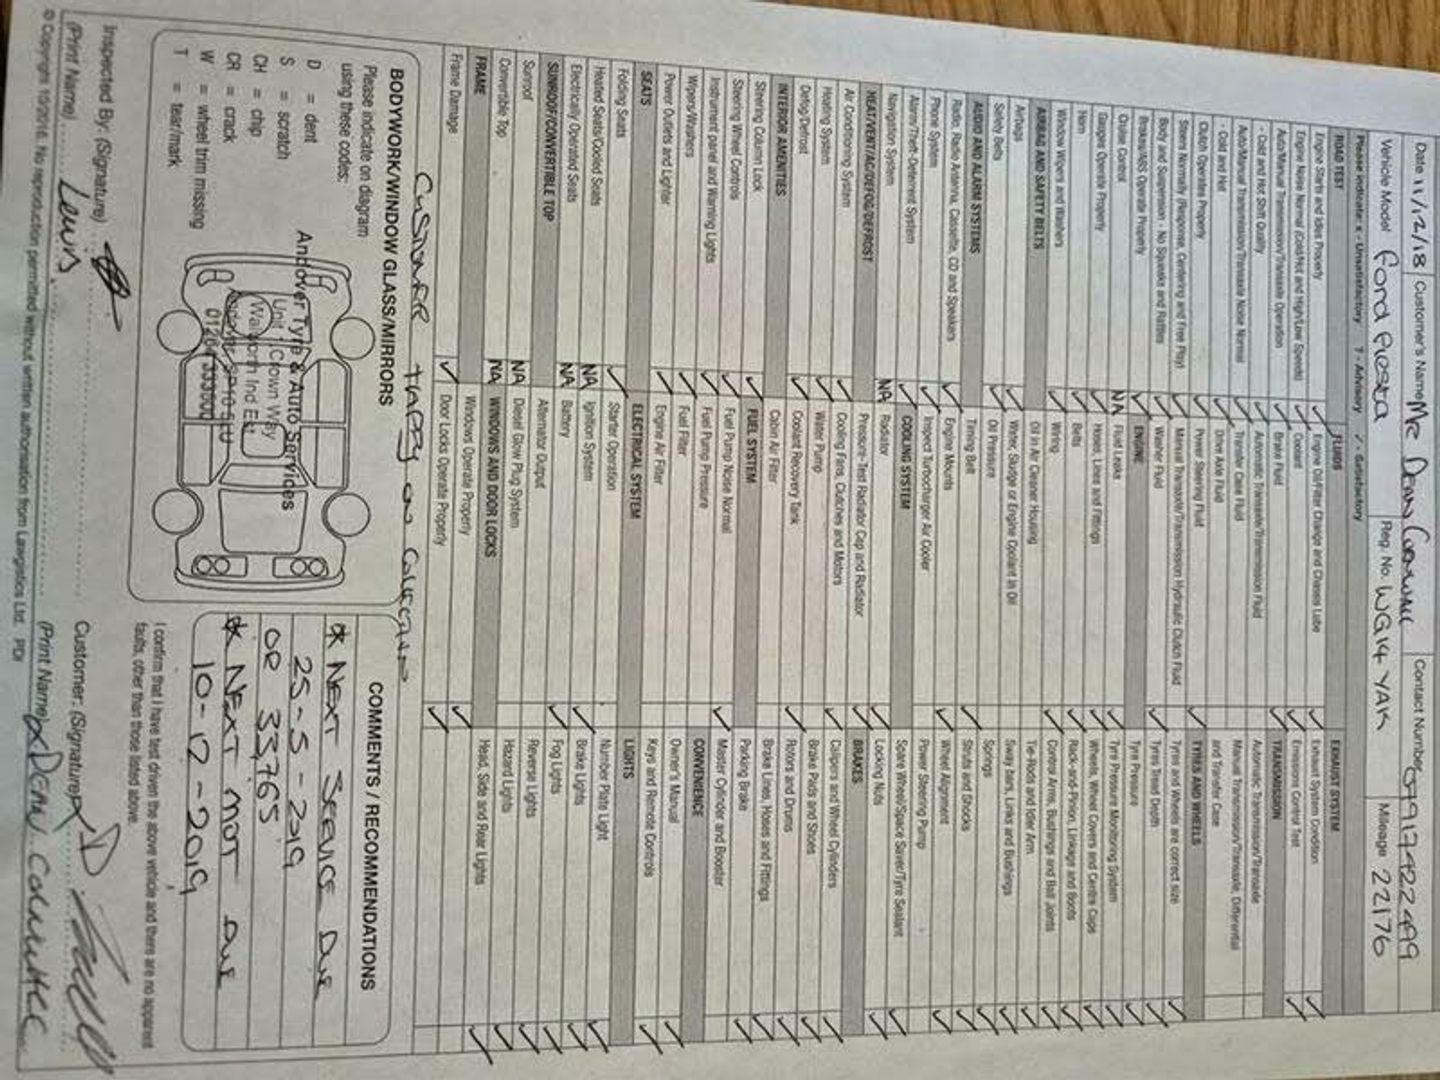 Date 11/12/18 Customer's Name Mr Dean Contact Number
Vehicle Model Ford Fiesta Reg. No. WG14 YAK Mileage 22176
Please indicate: x - Unsatisfactory ? - Advisory ✓ - Satisfactory
ROAD TEST
Engine Starts and Idles Properly ✓
Engine Noise Normal (Cold/Hot and High/Low Speeds) ✓
Auto/Manual Transmission/Transaxle Operation ✓
- Cold and Hot Shift Quality ✓
Auto/Manual Transmission/Transaxle Noise Normal ✓
- Cold and Hot ✓
Clutch Operates Properly ✓
Steers Normally (Response, Centering and Free Play) ✓
Body and Suspension - No Squeaks and Rattles ✓
Brakes/ABS Operate Properly ✓
Cruise Control NA
Gauges Operate Properly ✓
Horn ✓
Window Wipers and Washers
AIRBAG AND SAFETY BELTS
Airbags ✓
Safety Belts ✓
AUDIO AND ALARM SYSTEMS
Radio, Radio Antenna, Cassette, CD and Speakers ✓
Phone System ✓
Alarm/Theft-Deterrent System
Navigation System NA
HEAT/VENT/AC/DEFOG/DEFROST
Air Conditioning System ✓
Heating System ✓
Defog/Defrost ✓
INTERIOR AMENITIES
Steering Column Lock ✓
Steering Wheel Controls ✓
Instrument panel and Warning Lights ✓
Wipers/Washers ✓
Power Outlets and Lighter ✓
SEATS
Folding Seats ✓
Heated Seats/Cooled Seats NA
Electrically Operated Seats NA
SUNROOF/CONVERTIBLE TOP
Sunroof NA
Convertible Top NA
FRAME
Frame Damage ✓
FLUIDS
Engine Oil/Filter Change and Chassis Lube ✓
Coolant ✓
Brake Fluid ✓
Automatic Transaxle/Transmission Fluid
Transfer Case Fluid
Drive Axle Fluid
Power Steering Fluid ✓
Manual Transaxle/Transmission Hydraulic Clutch Fluid
Washer Fluid ✓
ENGINE
Fluid Leaks ✓
Hoses, Lines and Fittings ✓
Belts ✓
Wiring ✓
Oil in Air Cleaner Housing
Water, Sludge or Engine Coolant in Oil
Oil Pressure
Timing Belt ✓
Engine Mounts ✓
Inspect Turbocharger Air Cooler
COOLING SYSTEM
Radiator ✓
Pressure-Test Radiator Cap and Radiator ✓
Cooling Fans, Clutches and Motors ✓
Water Pump
Coolant Recovery Tank ✓
Cabin Air Filter
FUEL SYSTEM
Fuel Pump Noise Normal ✓
Fuel Pump Pressure
Fuel Filter
Engine Air Filter
ELECTRICAL SYSTEM
Starter Operation
Ignition System ✓
Battery ✓
Alternator Output
Diesel Glow Plug System
WINDOWS AND DOOR LOCKS
Windows Operate Properly ✓
Door Locks Operate Properly ✓
EXHAUST SYSTEM
Exhaust System Condition ✓
Emissions Control Test ✓
TRANSMISSION
Automatic Transmission/Transaxle
Manual Transmission/Transaxle, Differential
and Transfer Case
TYRES AND WHEELS
Tyres and Wheels are correct size ✓
Tyres Tread Depth ✓
Tyre Pressure ✓
Tyre Pressure Monitoring System ✓
Wheels, Wheel Covers and Centre Caps ✓
Rack-and-Pinion, Linkage and Boots ✓
Control Arms, Bushings and Ball Joints ✓
Tie-Rods and Idler Arm ✓
Sway bars, Links and Bushings ✓
Springs ✓
Struts and Shocks ✓
Wheel Alignment ✓
Power Steering Pump
Spare Wheel/Space Saver/Tyre Sealant ✓
Locking Nuts ✓
BRAKES
Calipers and Wheel Cylinders ✓
Brake Pads and Shoes ✓
Rotors and Drums ✓
Brake Lines, Hoses and Fittings ✓
Parking Brake ✓
Master Cylinder and Booster
CONVENIENCE
Owner's Manual ✓
Keys and Remote Controls ✓
LIGHTS
Number Plate Light ✓
Brake Lights ✓
Fog Lights ✓
Reverse Lights ✓
Hazard Lights ✓
Head, Side and Rear Lights ✓
CUSTOMER HAPPY ON COLLECTION
BODYWORK/WINDOW GLASS/MIRRORS
Please indicate on diagram
using these codes:
D = dent
S = scratch
CH = chip
CR = crack
W = wheel trim missing
T = tear/mark
Andover Tyre & Auto Services
Unit 1 Crown Way
Walworth Ind Est
Andover SP10 5LU
01264 333600
COMMENTS / RECOMMENDATIONS
* NEXT SERVICE DUE
25-5-2019
OR 33,765
* NEXT MOT DUE
10-12-2019
I confirm that I have test driven the above vehicle and there are no apparent
faults, other than those listed above.
Inspected By: (Signature)
(Print Name) Lewis
Customer: (Signature) X
(Print Name) X DEAN
© Copyright 10/2016. No reproduction permitted without written authorisation from Lawgistics Ltd. PDI